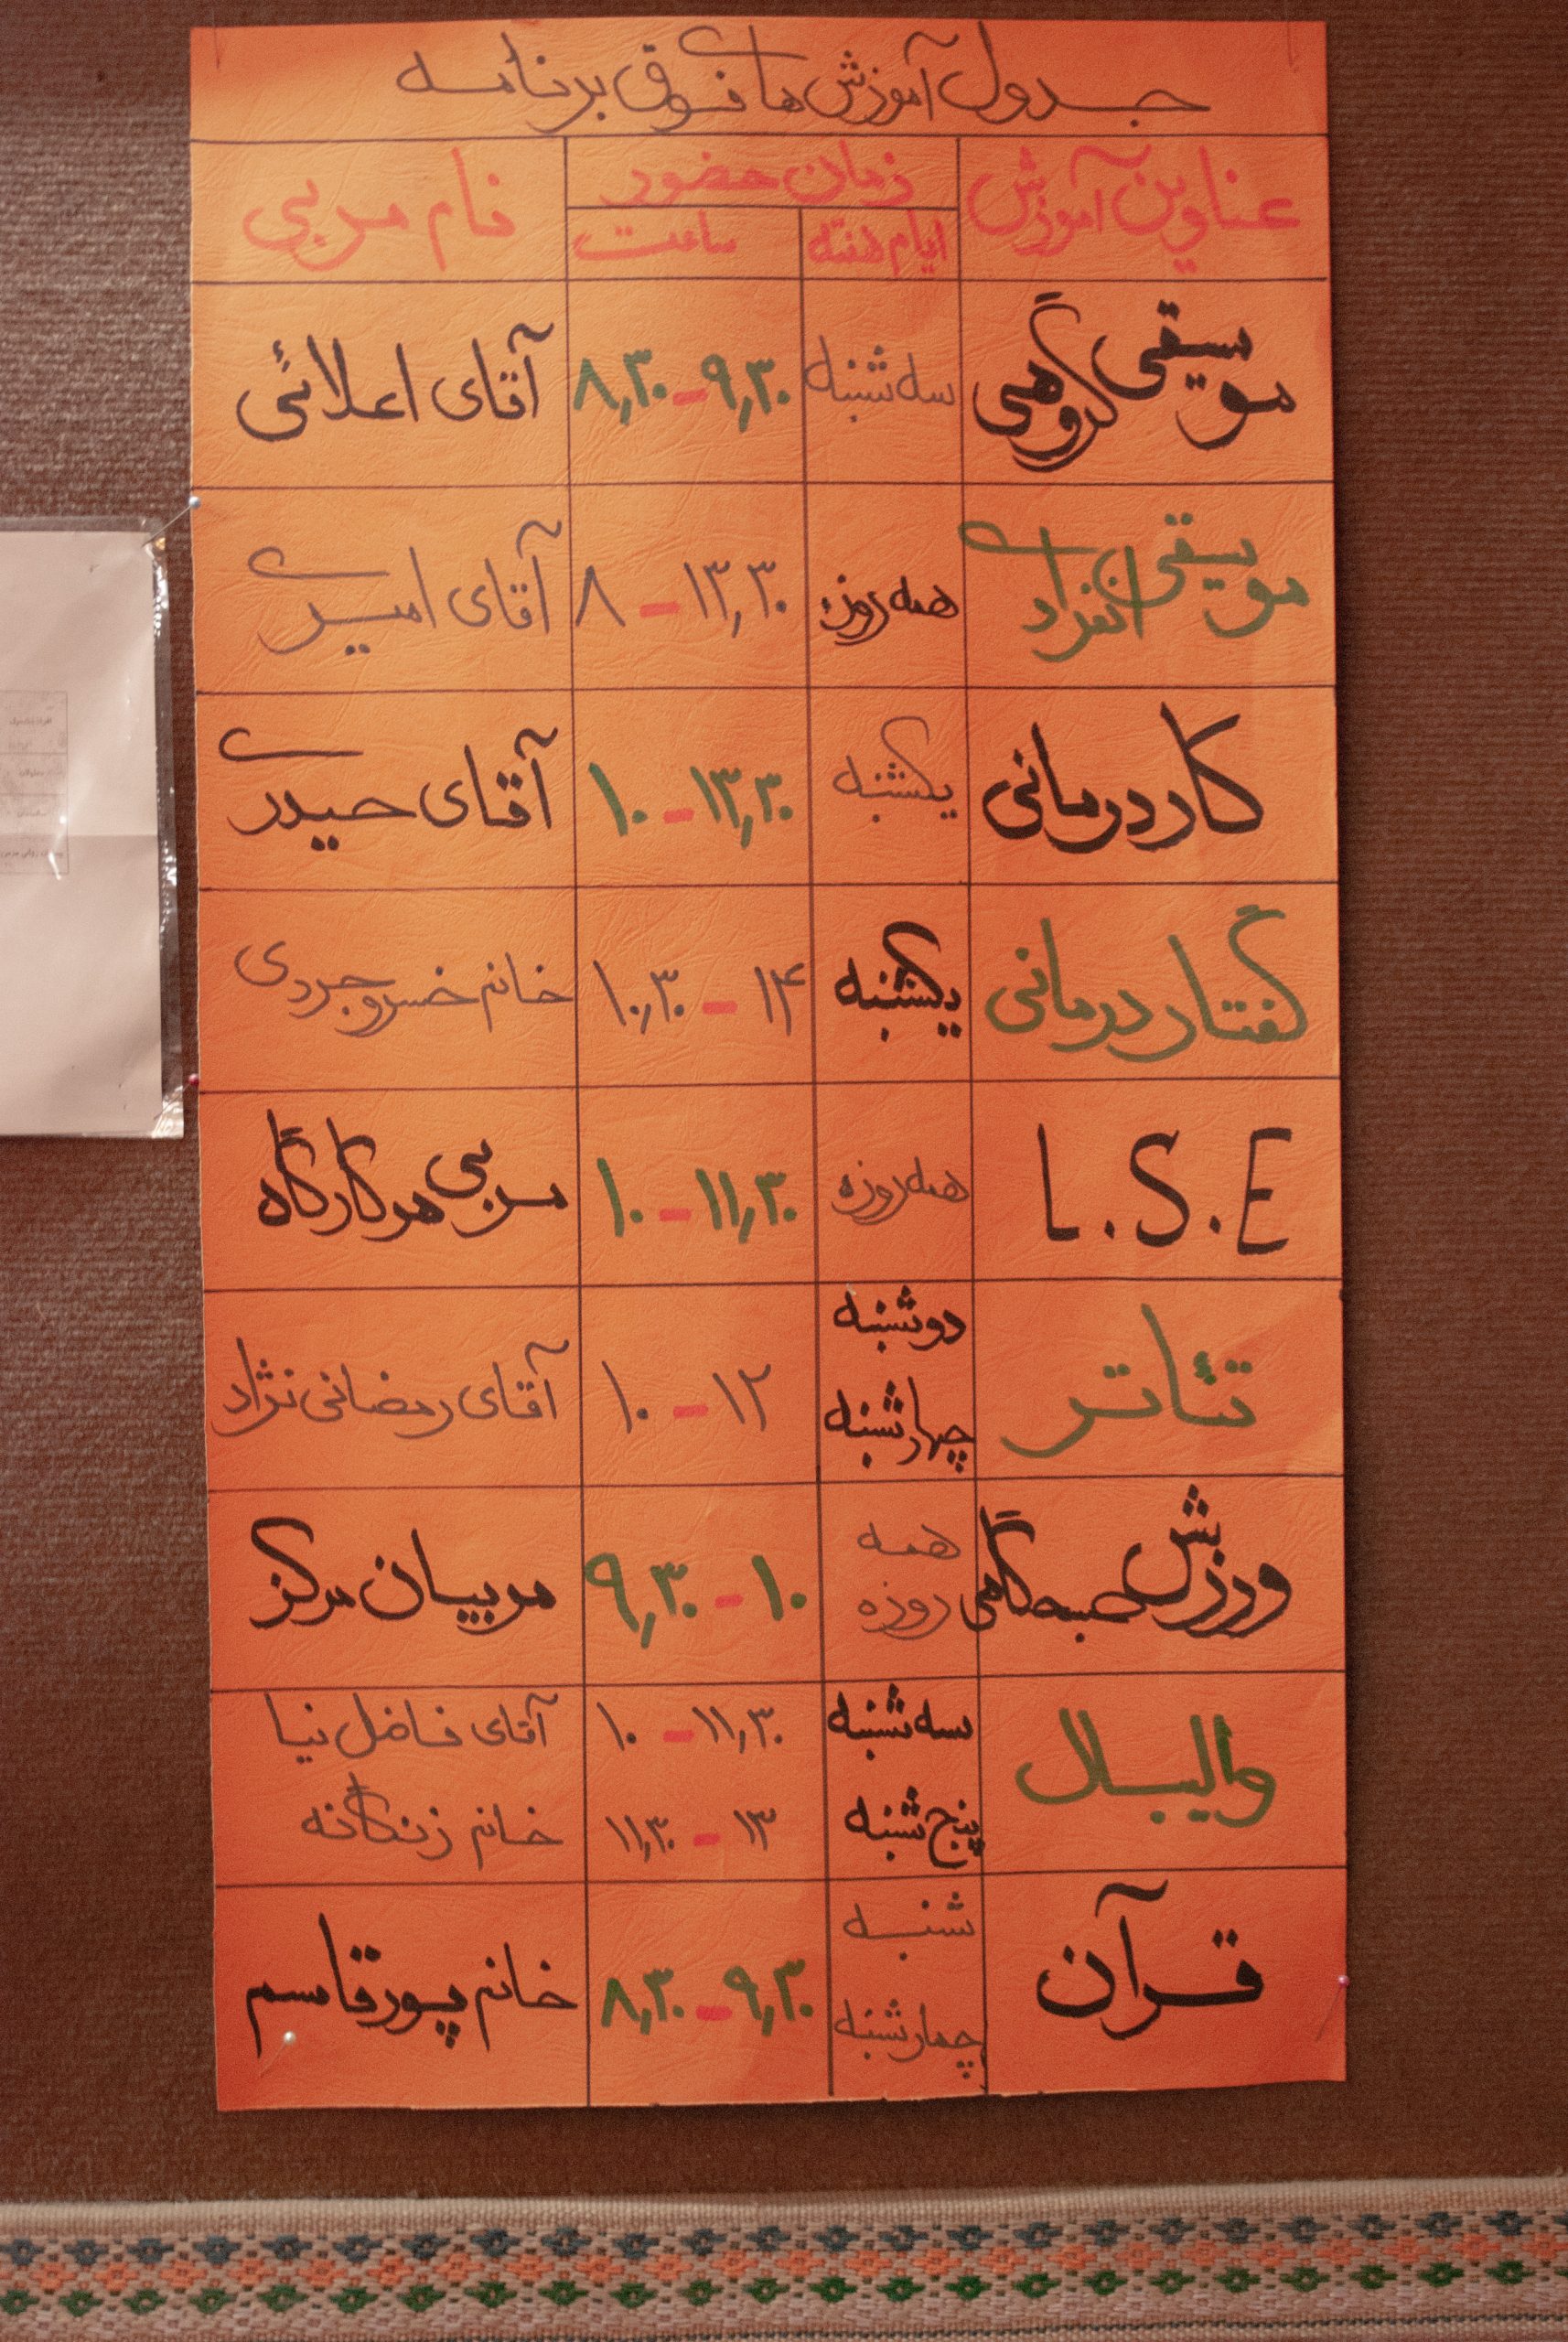 جدول آموزش های فوق برنامه
عناوین آموزش زمان حضور نام مربی
ایام هفته ساعت
موسیقی گروهی سه شنبه ۸,۳۰ - ۹,۳۰ آقای اعلائی
موسیقی انفرادی همه روزه ۸ - ۱۳,۳۰ آقای امیری
کاردرمانی یکشنبه ۱۰ - ۱۳,۳۰ آقای حیدری
گفتاردرمانی یکشنبه ۱۰,۳۰ - ۱۴ خانم خسروجردی
L.S.E همه روزه ۱۰ - ۱۱,۳۰ مربی هر کارگاه
تئاتر دوشنبه چهارشنبه ۱۰ - ۱۲ آقای رمضانی نژاد
ورزش صبحگاهی همه روزه ۹,۳۰ - ۱۰ مربیان مرکز
والیبال سه شنبه ۱۰ - ۱۱,۳۰ آقای فاضل نیا
پنج شنبه ۱۱,۳۰ - ۱۳ خانم زنگانه
قرآن شنبه چهارشنبه ۸,۳۰ - ۹,۳۰ خانم پورقاسم